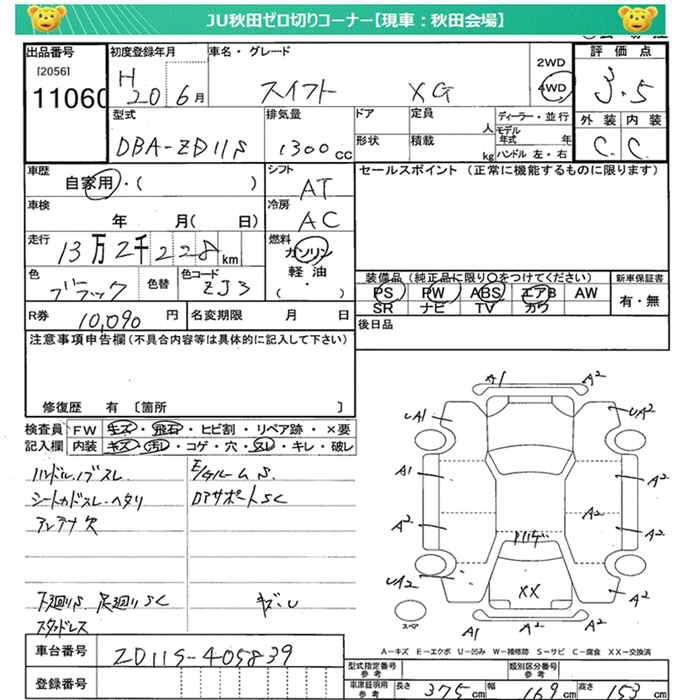 JU秋田ゼロ切りコーナー【現車：秋田会場】
出品番号 初度登録年月 車名・グレード 2WD 評価点
[2056] H 4WD
11060 20 6月 スイフト XG 3.5
型式 排気量 ドア 定員 人 ディーラー・並行 外装 内装
モデル年式 年
DBA-ZD11S 1300cc 形状 積載 kg ハンドル 左・右 C. C.
車歴 シフト セールスポイント (正常に機能するものに限ります)
自家用・( ) AT
車検 冷房
年 月( 日) AC
走行 燃料
13万2千228km ガソリン
色 色替 色コード 軽油 装備品 (純正品に限り○をつけてください) 新車保証書
ブラック ZJ3 ・( ) PS PW ABS エアB AW 有・無
SR ナビ TV カワ
R券 10,090円 名変期限 月 日 後日品
注意事項申告欄(不具合内容等は具体的に記入して下さい)
修復歴 有 〔箇所 〕
検査員 FW キズ・飛石・ヒビ割・リペア跡・×要
記入欄 内装 キズ・汚レ・コゲ・穴・スレ・キレ・破レ
ハンドル.ノブスレ E/gルームS.
シートカドスレ.ヘタリ DアサポートSC
アンテナ欠
下廻りS 足廻りSC キズ.U
スタッドレス
A1 A2
UA1 UA2
A1 A2
A2 A2 A2
UA2 XX A2
スペア A1 A2
A-キズ E-エクボ U-凹み W-補修跡 S-サビ C-腐食 XX-交換済
車台番号 ZD11S-405839
登録番号
型式指定番号 参考 類別区分番号 参考
車庫証明用 参考 長さ 375cm 幅 169cm 高さ 153cm